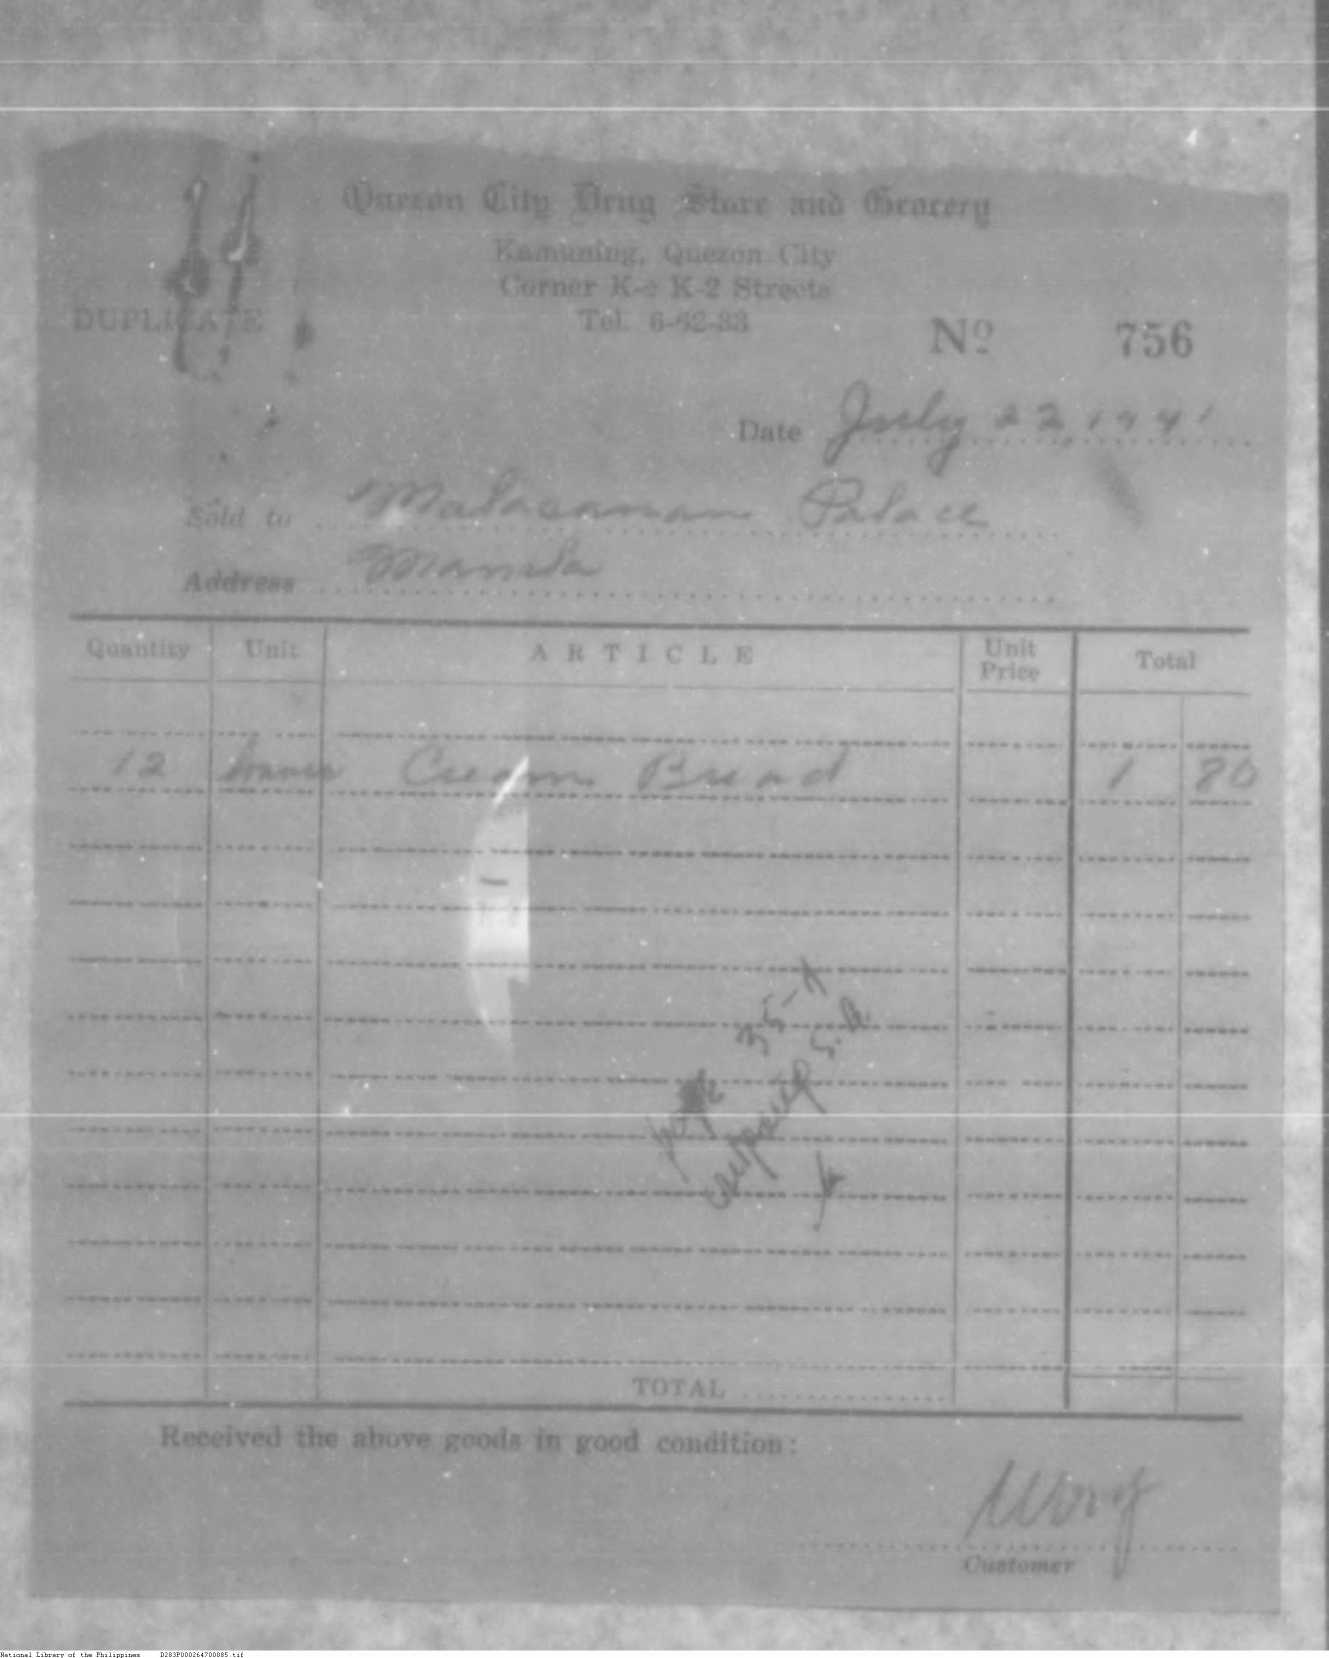 Quezon City Drug Store and Grocery
Kamuning, Quezon City
Corner K- K-2 Streets
DUPLICATE
Tel. 6-42-33
Nº 756
Date July 22, 1941
Sold to Malacanan Palace
Address Manila
Quantity Unit ARTICLE Unit Price Total
12 Cream Bread 1 80
35-A
S. A.
TOTAL
Received the above goods in good condition:
Wong
Customer
National Library of the Philippines D283P000264700085.tif